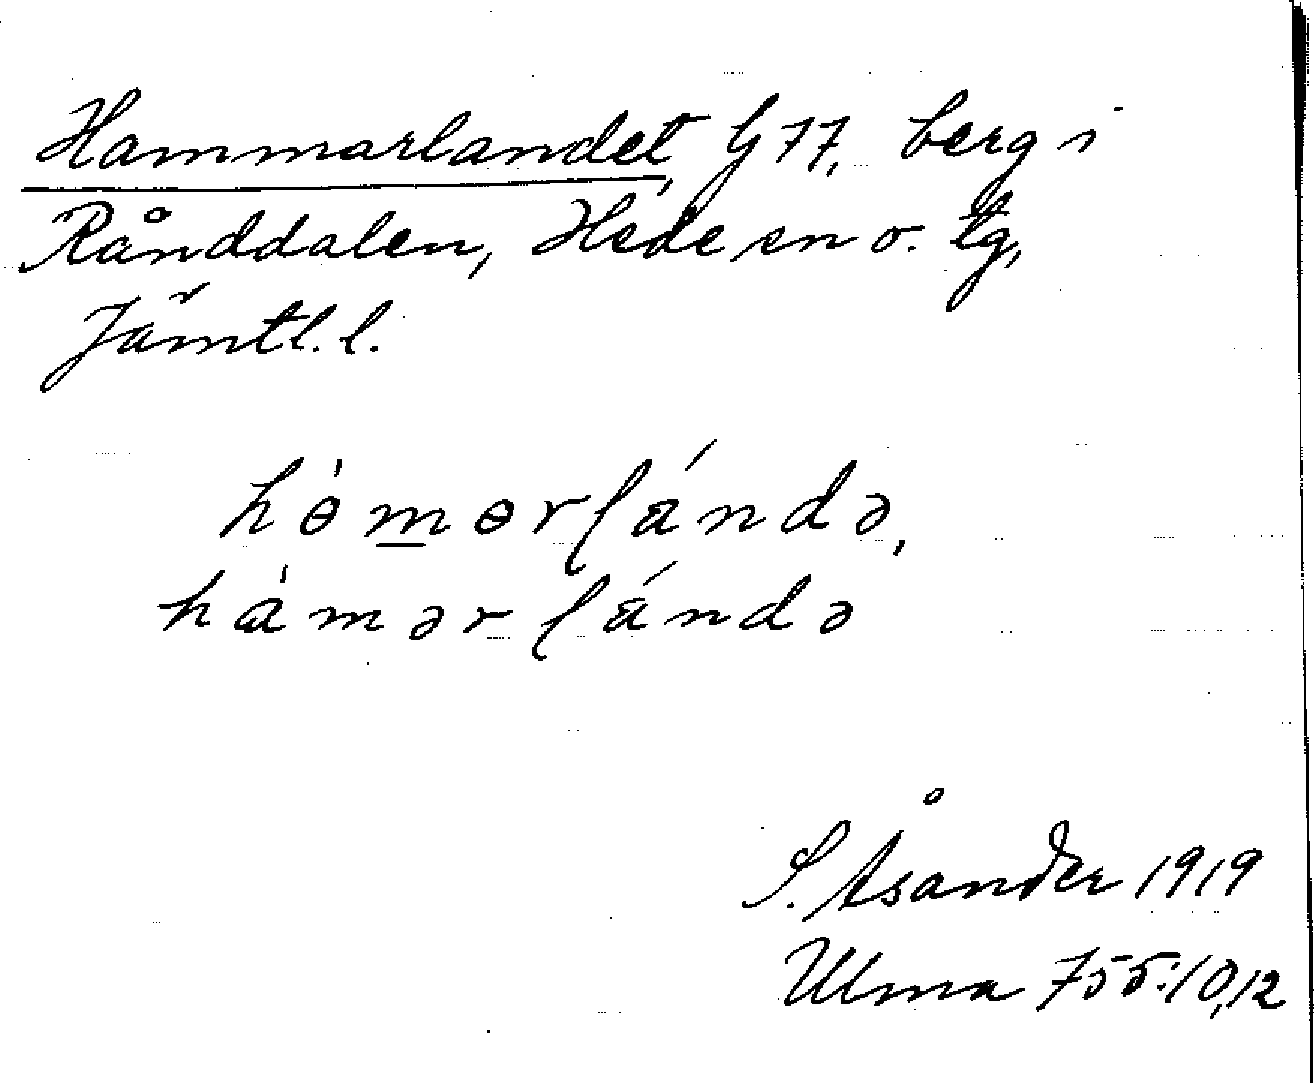 Hammarlandet, G 77, berg i
Rånddalen, Hede sn o. tg,
Jämtl. l.
hɵ̀mɵrlándə,
hàmərlándə
S. Åsander 1919
Ulma 755:10,12